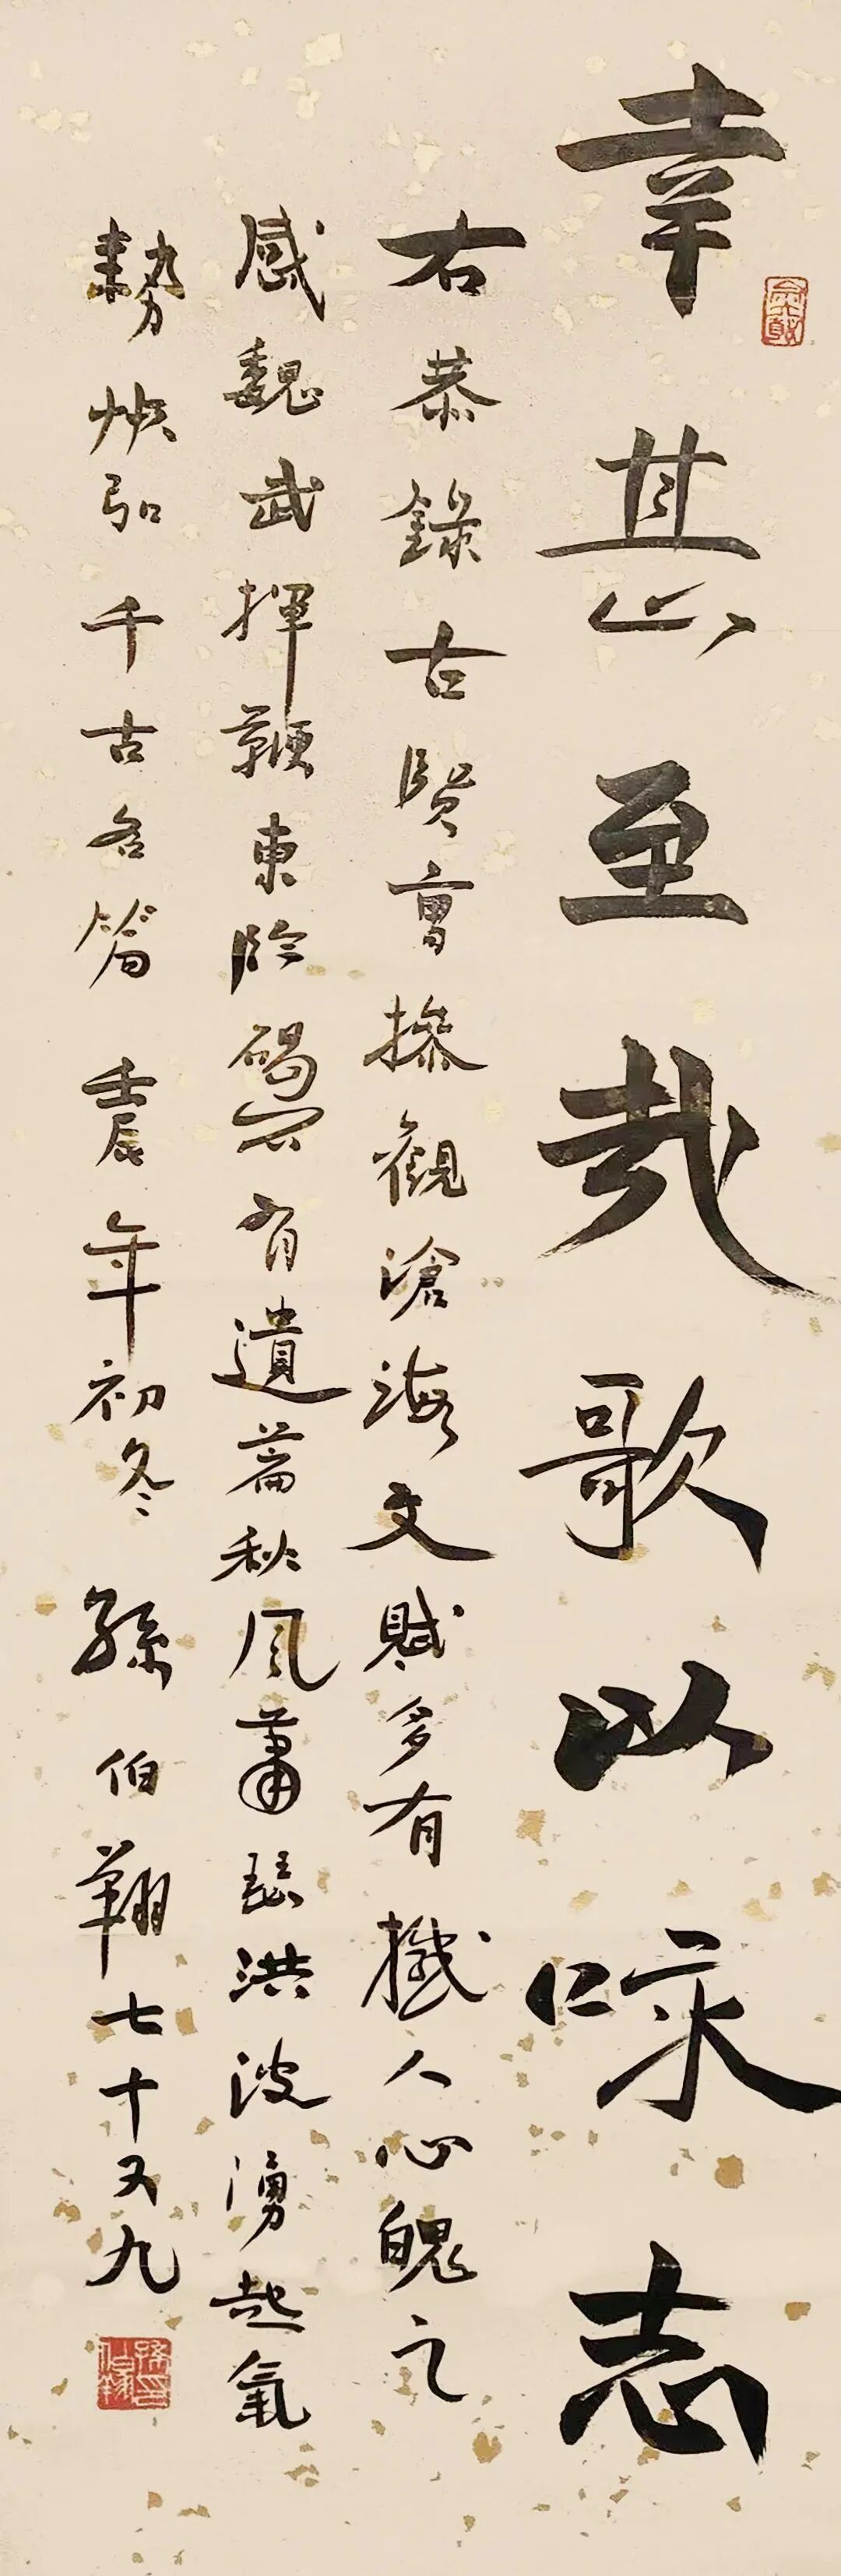 幸甚至哉歌以咏志
右恭錄古賢曹操觀滄海文賦多有撼人心魄之
感魏武揮鞭東臨碣石有遺篇秋風蕭瑟洪波湧起氣
勢恢弘千古名篇 壬辰年初冬 孫伯翔七十又九
孫伯翔印